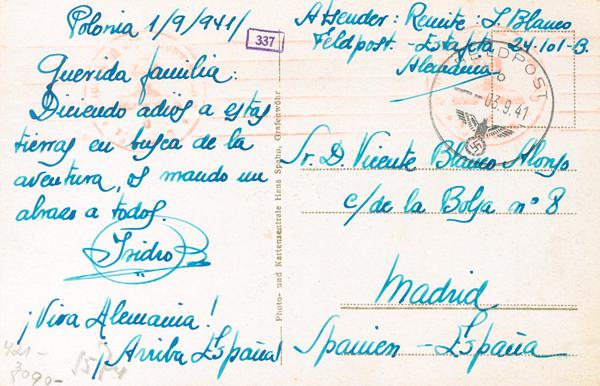 Polonia 1/9/941/
Querida familia:
Diciendo adiós a estas
tierras en busca de la
aventura, os mando un
abrazo a todos.
Isidro B
¡Viva Alemania!
¡Arriba España!
337
Photo- und Kartenzentrale Hans Spahn, Grafenwöhr
Absender: Remite: I. Blanco
Feldpost - Estafeta 24.101-B.
Alemania
FELDPOST
b
03.9.41
Sr. D. Vicente Blanco Alonso
c/ de la Bolsa nº 8
Madrid
Spanien - España